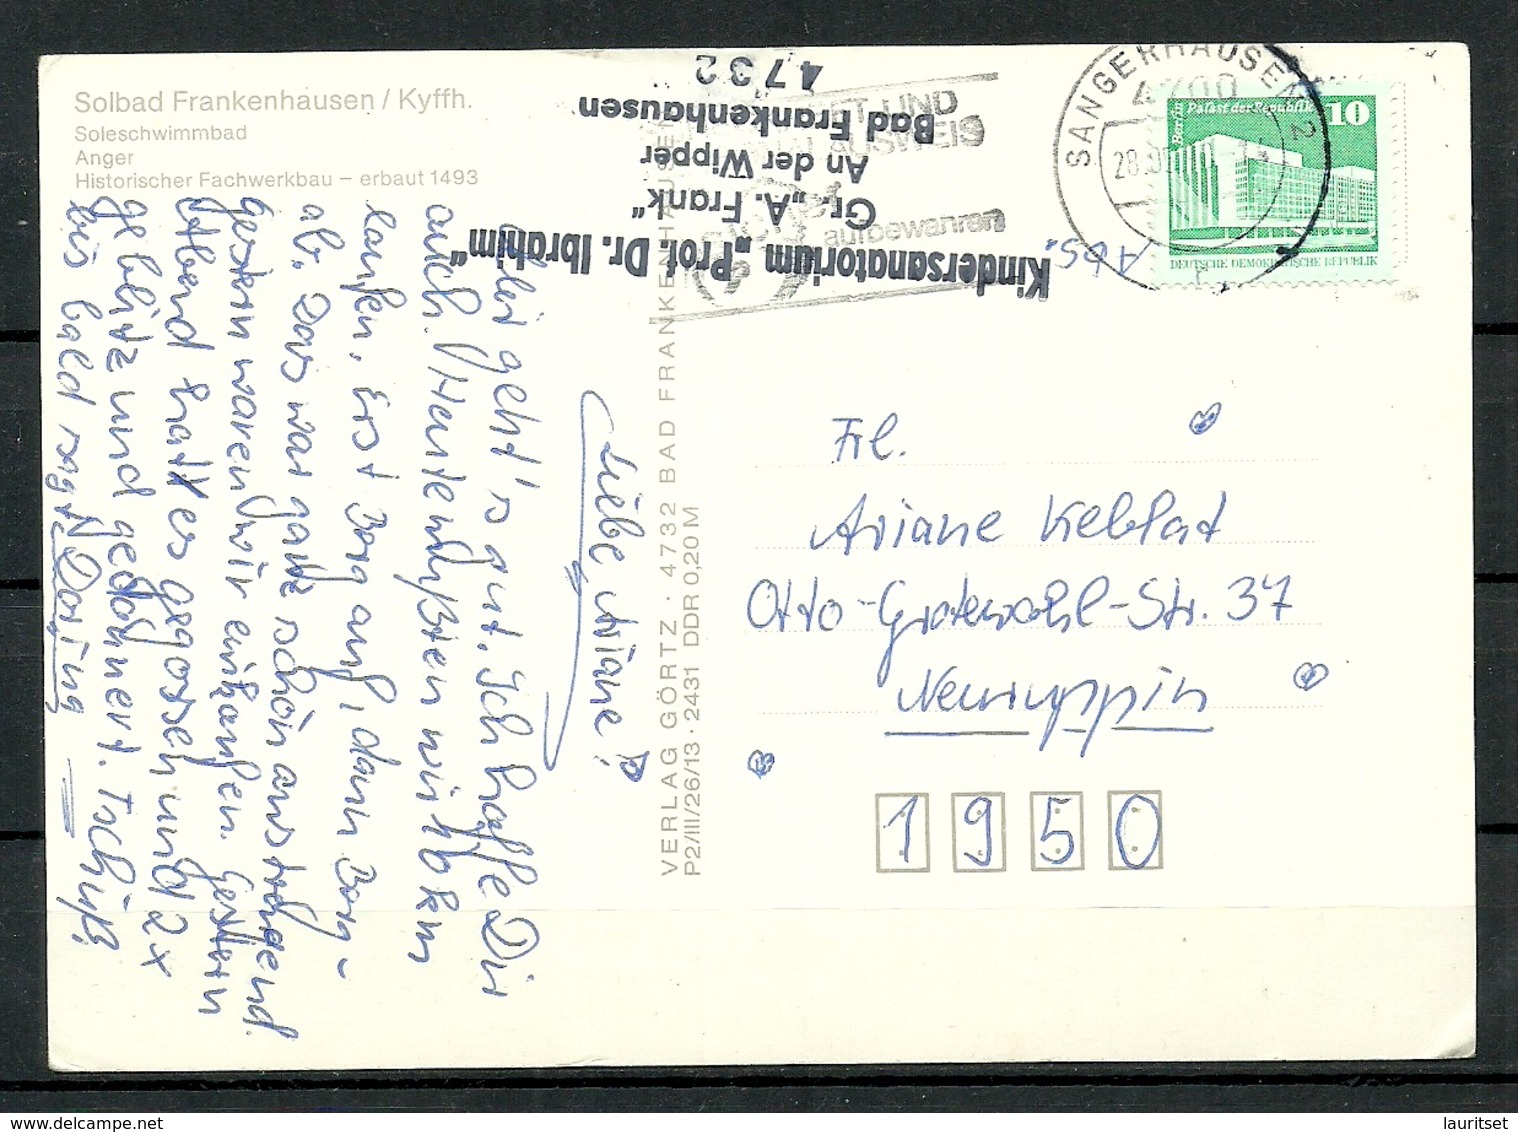 Solbad Frankenhausen / Kyffh.
Soleschwimmbad
Anger
Historischer Fachwerkbau – erbaut 1493
Kindersanatorium „Prof. Dr. Ibrahim“
Gr. „A. Frank“
An der Wipper
Bad Frankenhausen
4732
aufbewahren
Abs.
SANGERHAUSEN 2
4700
Berlin Palast der Republik 10
DEUTSCHE DEMOKRATISCHE REPUBLIK
VERLAG GÖRTZ · 4732 BAD FRANKENHAUSEN
P2/III/26/13 · 2431 DDR 0,20 M
Liebe Ariane!
Mir geht's gut. Ich hoffe Dir
auch. Heute mußten wir 16 km
laufen. Erst Berg auf, dann Berg-
ab. Das war ganz schön anstrengend.
Gestern waren wir einkaufen. Gestern
Abend hatt es gegossen und 2x
geblitz und gedonnert. Tschüß
bis bald sagt
Frl.
Ariane Keblat
Otto-Grotewohl-Str. 37
Neuruppin
1950
lauritset